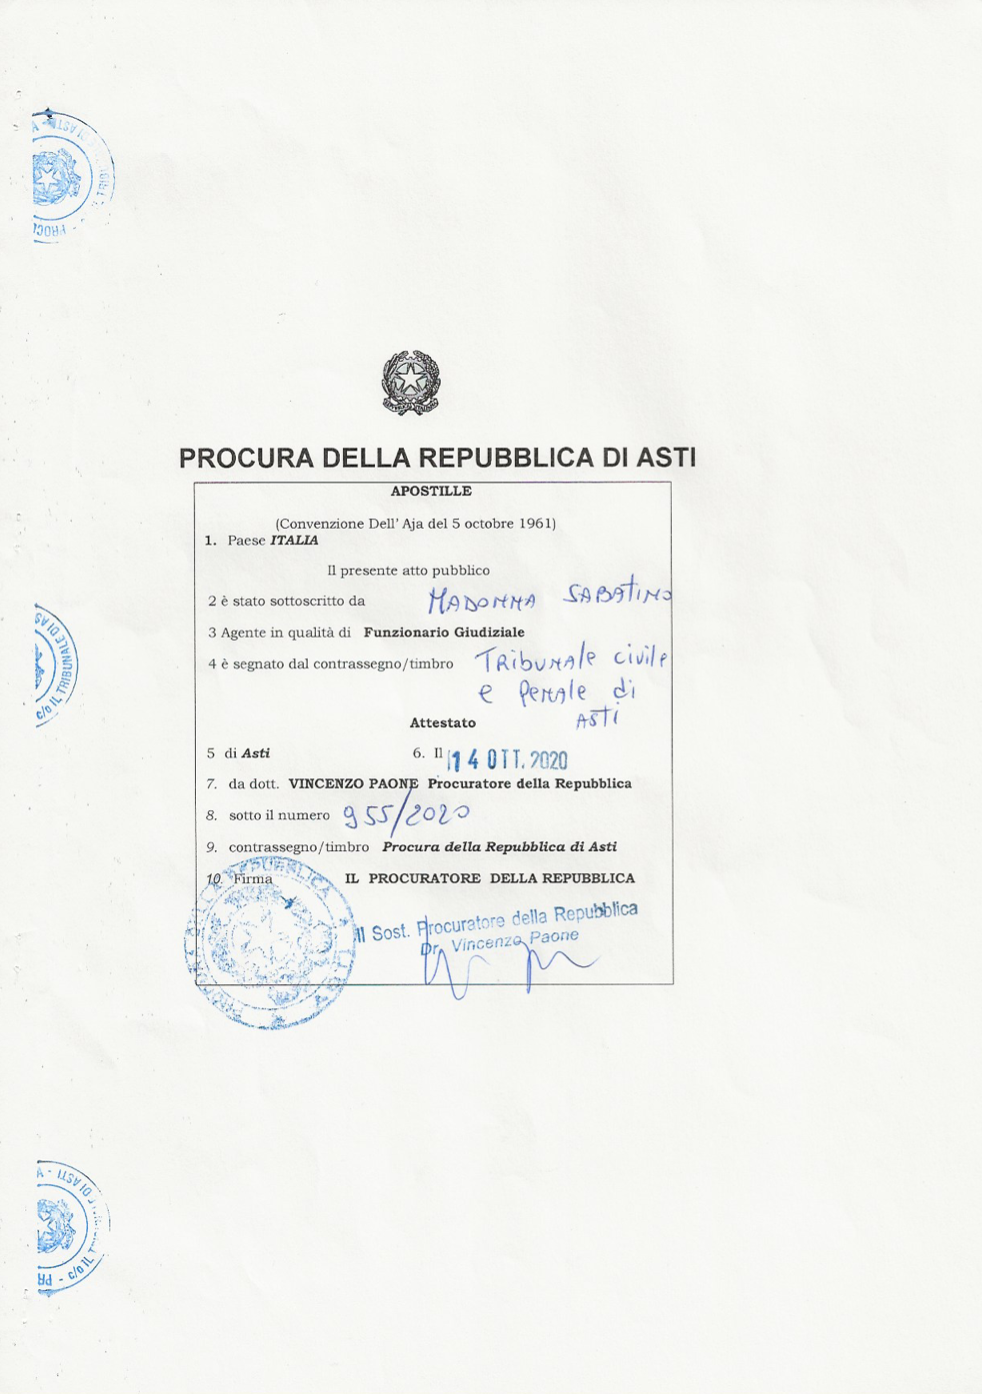 PROCURA DELLA REPUBBLICA DI ASTI
APOSTILLE
(Convenzione Dell' Aja del 5 octobre 1961)
1. Paese ITALIA
Il presente atto pubblico
2 è stato sottoscritto da MADONNA SABATINO
3 Agente in qualità di Funzionario Giudiziale
4 è segnato dal contrassegno/timbro TRibuNAle civile
e PeNAle di
ASTI
Attestato
5 di Asti 6. Il 14 OTT. 2020
7. da dott. VINCENZO PAONE Procuratore della Repubblica
8. sotto il numero 955/2020
9. contrassegno/timbro Procura della Repubblica di Asti
10. Firma IL PROCURATORE DELLA REPUBBLICA
Il Sost. Procuratore della Repubblica
Dr. Vincenzo Paone
c/o IL TRIBUNALE DI AS